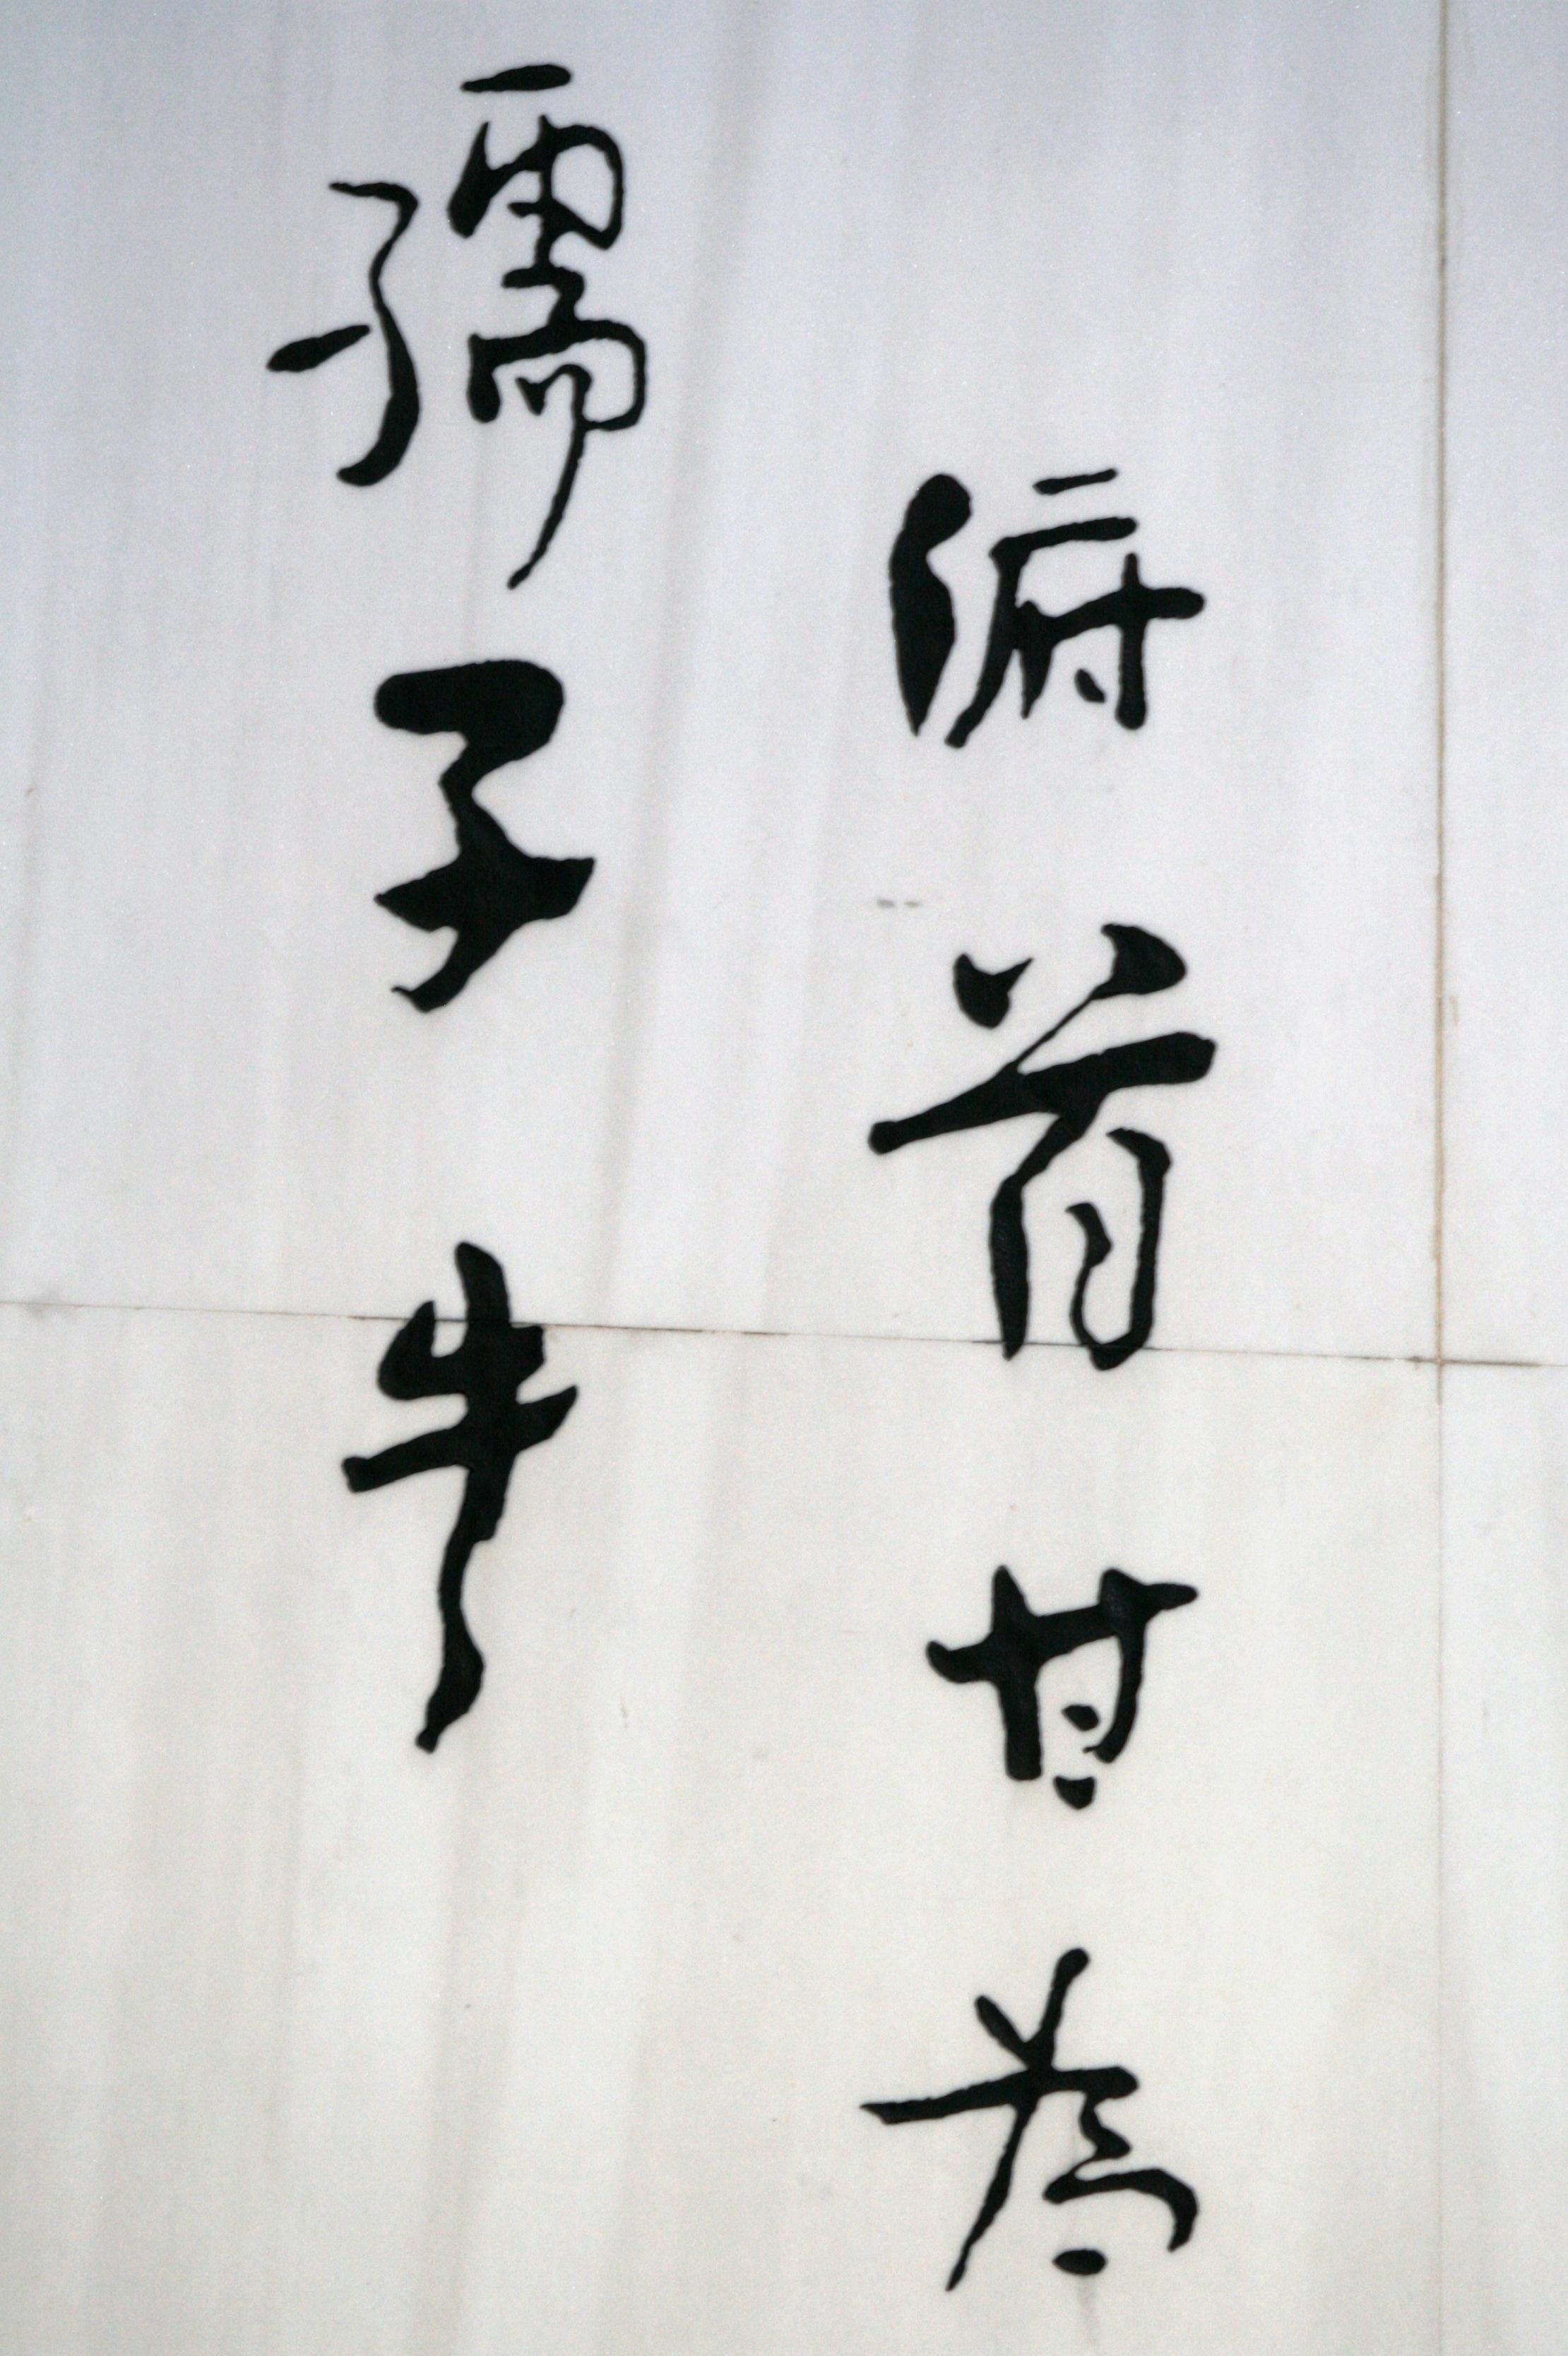 俯首甘為
孺子牛